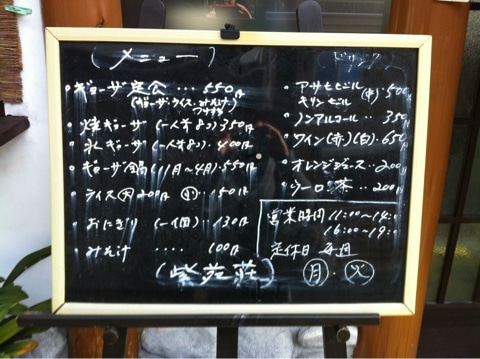 (メニュー)
・ギョーザ定食 … 550円
(ギョーザ・ライス・みそ汁・
つけもの)
・焼ギョーザ (一人前8コ) 350円
・水ギョーザ (一人前8コ) … 400円
・ギョーザ鍋 (11月〜4月) … 550円
・ライス 大 200円 小 … 150円
・おにぎり (一個) … 130円
・みそ汁 …. 100円
(紫苑荘)
ドリンク
・アサヒビール
キリンビール (中) … 500
・ノンアルコール … 350
・ワイン(赤)(白) … 650
・オレンジジュース … 200
・ウーロン茶 … 200
営業時間 11:00〜14:0
16:00〜19:
定休日 毎週
月・火